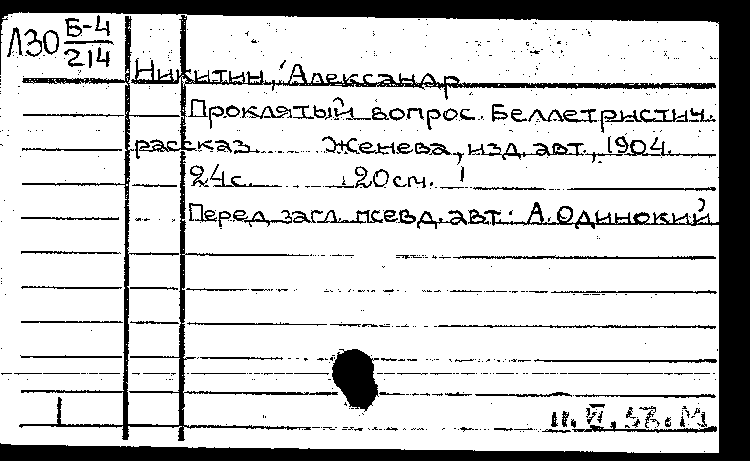 Л30 Б-4
214
Никитин, Александр
Проклятый вопрос. Беллетристич.
рассказ. Женева, изд. авт., 1904.
24с. 20см.
Перед загл. псевд. авт: А.Одинокий